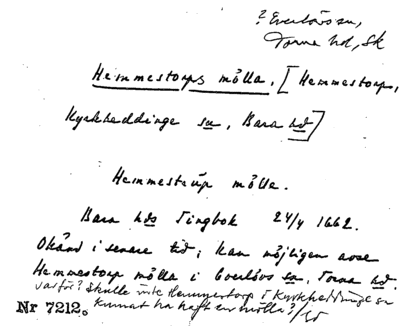 ? Everlövs sn,
Torna hd, Sk
Hemmestorps mölla, [Hemmestorps,
Kyrkheddinge sn, Bara hd]
Hemmestrup mölla.
Bara hds Tingbok 24/4 1662.
Okänd i senare tid; kan möjligen avse
Hemmestorp mölla i Everlövs sn, Torna hd.
varför? Skulle inte Hemmestorp i Kyrkheddinge sn
Nr 7212. kunnat ha haft en mölla?